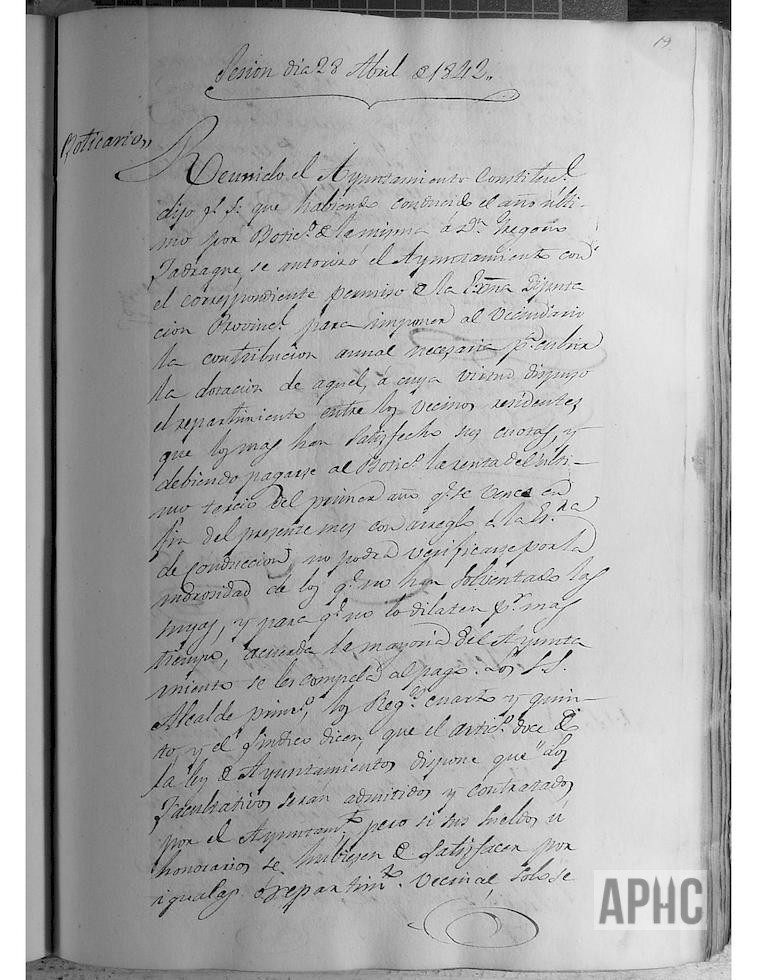 19
Sesion dia 28 Abril de 1842„
Boticario„
Reunido el Ayuntamiento Constitucl.
dijo pr. Si: que habiendo conducido el año ulti-
mo por Boticº. de la misma á Dn. Gregorio
Jadraque, se autorizó el Ayuntamiento con
el correspondiente permiso de la Exma Diputa
cion Provincl. para imponer al Vecindario
la contribucion anual necesaria pa. cubrir
la dotacion de aquel, á cuya virtud dispuso
el repartimiento entre los Vecinos residentes
que los mas han satisfecho sus cuotas, y
debiendo pagarse al Boticº. la renta del ulti-
mo tercio del primer año qe. se vence en
fin del presente mes con arreglo á la Esra.
de conduccion, no podrá verificarse por la
morosidad de los qe. no han solventado las
suyas, y para qe. no lo dilaten pr. mas
tiempo, acuerda la mayoria del Ayunta
miento se les compela al pago. Los SS.
Alcalde primº, los Regs. cuarto y quin-
to y el Sindico dicen, que el articº. doce de
la ley de Ayuntamientos dispone que "los
Facultativos serán admitidos y contratados
por el Ayuntamto. pero si sus sueldos ú
honorarios se hubiesen de satisfacer por
igualas ó repartimto. vecinal solo se
APHC